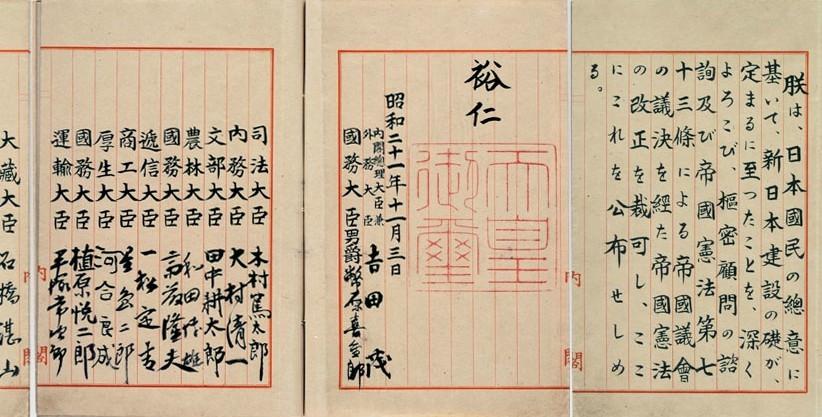 朕は、日本國民の總意に
基いて、新日本建設の礎が、
定まるに至つたことを、深く
よろこび、樞密顧問の諮
詢及び帝國憲法第七
十三條による帝國議會
の議決を経た帝國憲法
の改正を裁可し、ここ
にこれを公布せしめ
る。
裕仁
天皇御璽
昭和二十一年十一月三日
内閣總理大臣兼
外務大臣 吉田茂
國務大臣 男爵 幣原喜重郎
司法大臣 木村篤太郎
内務大臣 大村清一
文部大臣 田中耕太郎
農林大臣 和田博雄
國務大臣 斎藤隆夫
遞信大臣 一松定吉
商工大臣 星島二郎
厚生大臣 河合良成
國務大臣 植原悦二郎
運輸大臣 平塚常次郎
大藏大臣 石橋湛山
内閣
内閣